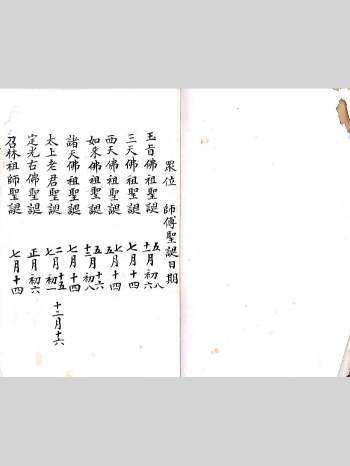 眾位 師傅聖誕日期
玉旨佛祖聖誕 五 初八 十一月 初六
三天佛祖聖誕 七月十四
西天佛祖聖誕 七月十四
如來佛祖聖誕 五 十六 十二月 初八
諸天佛祖聖誕 七月十四
太上老君聖誕 二月十五 七月初一 十二月十六
定光古佛聖誕 正月初六
召林祖師聖誕 七月十四